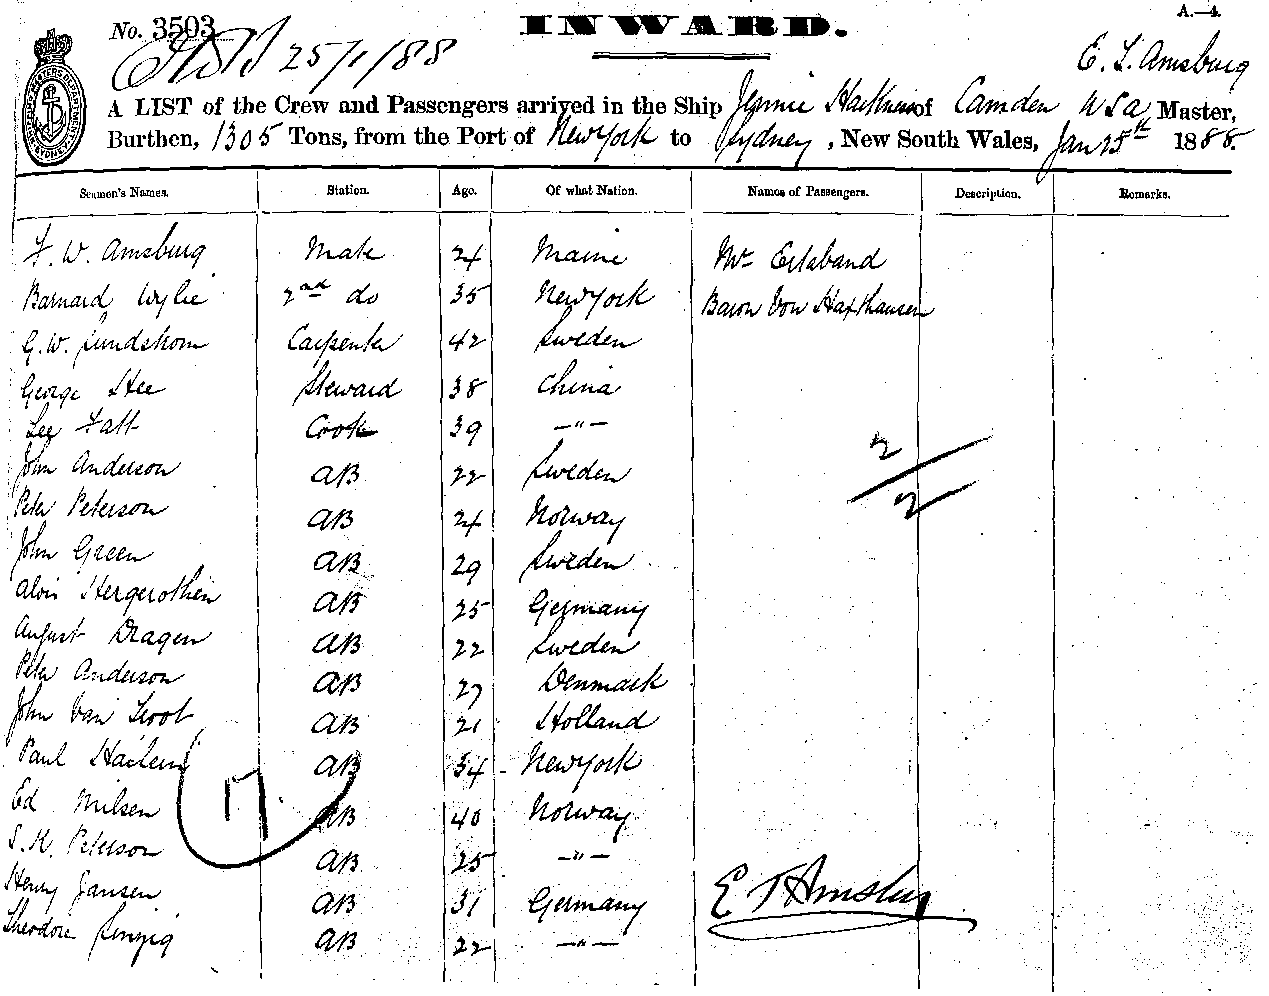 A.—4.
No. 3503 INWARD.
25/1/88
E. T. Amsbury
A LIST of the Crew and Passengers arrived in the Ship Jennie Harkness of Camden USA, Master,
Burthen, 1305 Tons, from the Port of New York to Sydney, New South Wales, Jan 25th 1888.
Seamen's Names. Station. Age. Of what Nation. Names of Passengers. Description. Remarks.
F. W. Amsbury Mate 24 Maine Mr
Barnard Wylie 2nd do 35 New York Baron Von Haxthausen
G. W. Lundstrom Carpenter 42 Sweden
George Hee Steward 38 China
Lee Fatt Cook 39 —"—
John Anderson AB 22 Sweden
Peter Peterson AB 24 Norway
John Green AB 29 Sweden
Alvis AB 25 Germany
August Dragen AB 22 Sweden
Peter Anderson AB 27 Denmark
John Van AB 21 Holland
Paul AB 34 New York
Ed Nilsen AB 40 Norway
S. K. Peterson AB 25 —"—
Henry Jansen AB 31 Germany
Theodore AB 22 —"—
2/2
17.
E T Amsbury